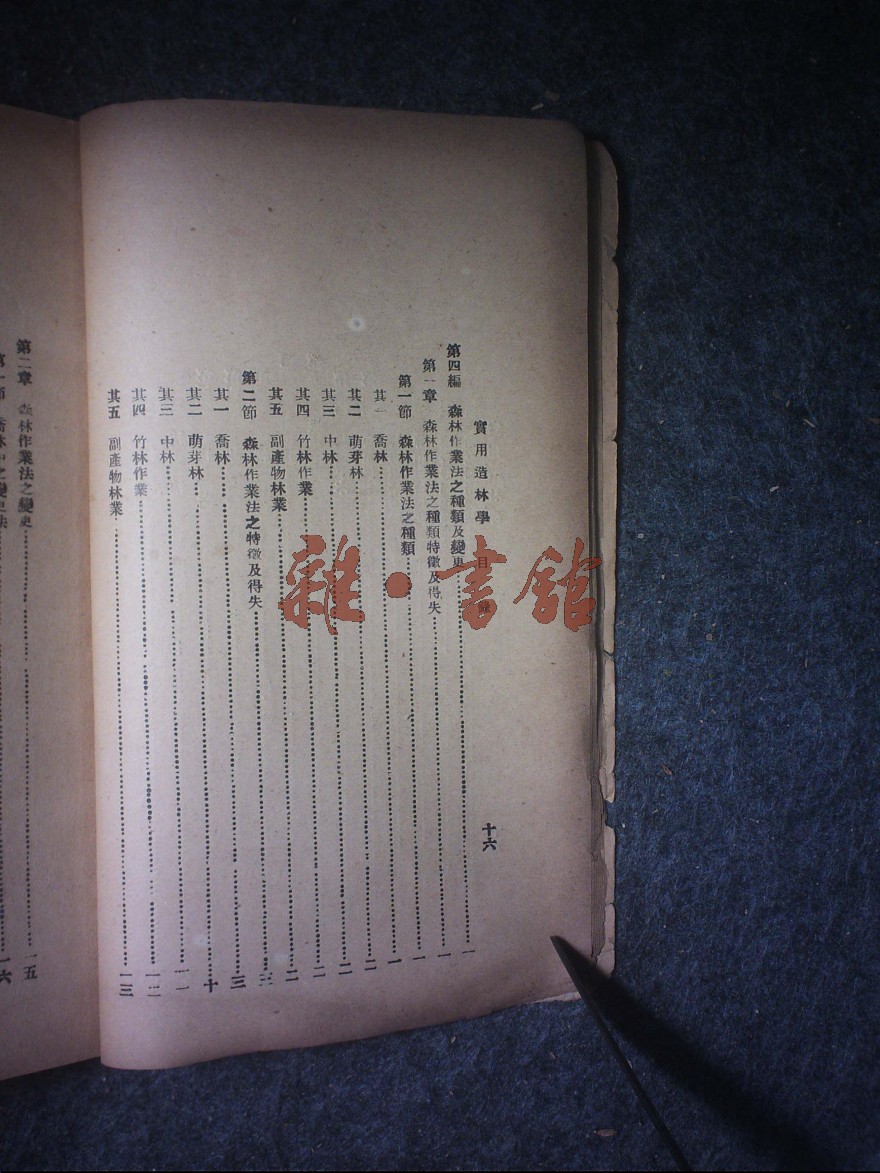 實用造林學 目錄 十六
第四編 森林作業法之種類及變更……一
第一章 森林作業法之種類特徵及得失……一
第一節 森林作業法之種類……一
其一 喬林……二
其二 萌芽林……二
其三 中林……二
其四 竹林作業……二
其五 副產物林業……三
第二節 森林作業法之特徵及得失……三
其一 喬林……
其二 萌芽林……十
其三 中林……一一
其四 竹林作業……一二
其五 副產物林業……一三
第二章 森林作業法之變更……一五
第一節 喬林……之變更法……一六
雜·書館